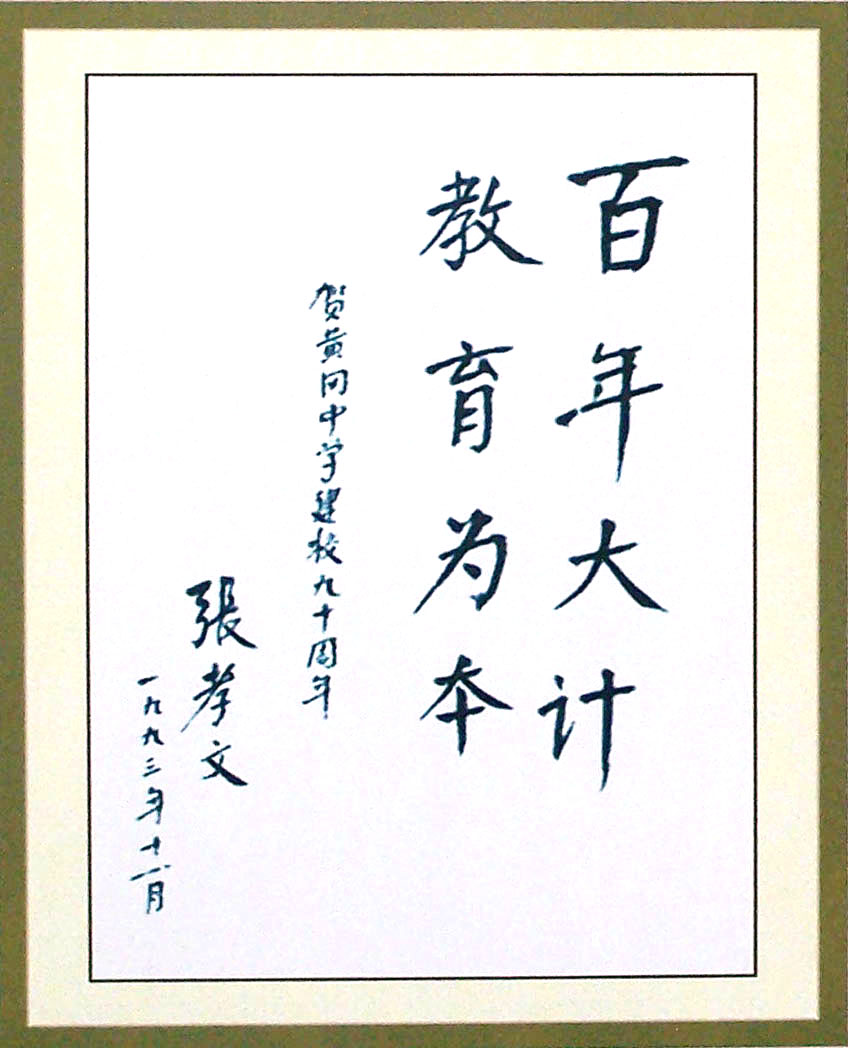 百年大计
教育为本
贺黄冈中学建校九十周年
張孝文
一九九三年十一月